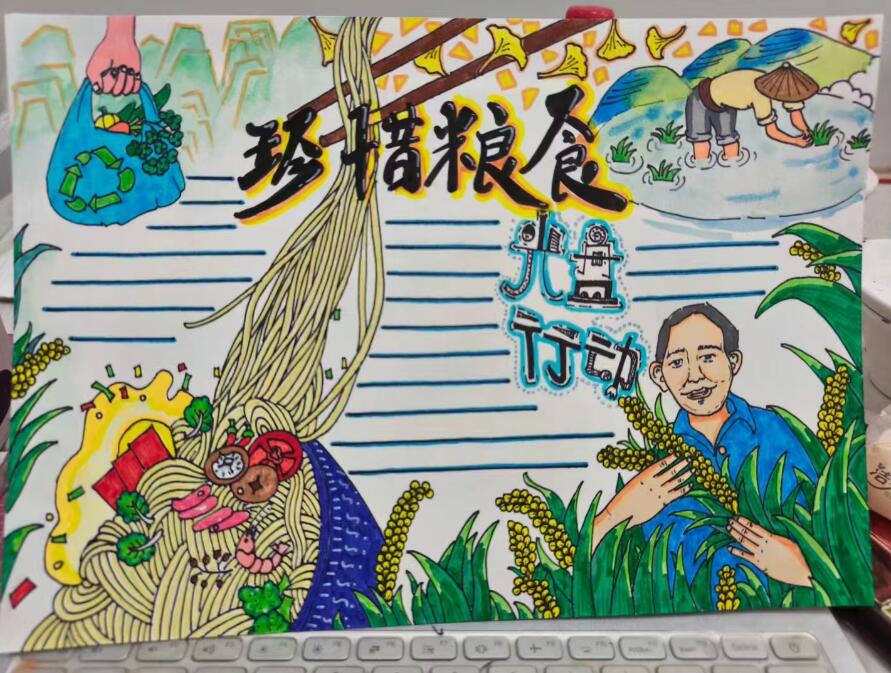 珍惜粮食
光盘
行动